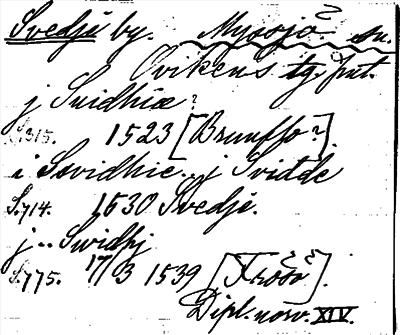 Svedji by. Myssjö sn.
Ovikens tg. Jmt.
j Suidhiæ?
S. 315. 1523 [Brunflo?].
i Ssvidhie.. j Svidde
S. 714. 1530 Svedje.
j .. Swidhj
S. 775. 17/3 1539 [Frösö].
Dipl. norv. XIV.